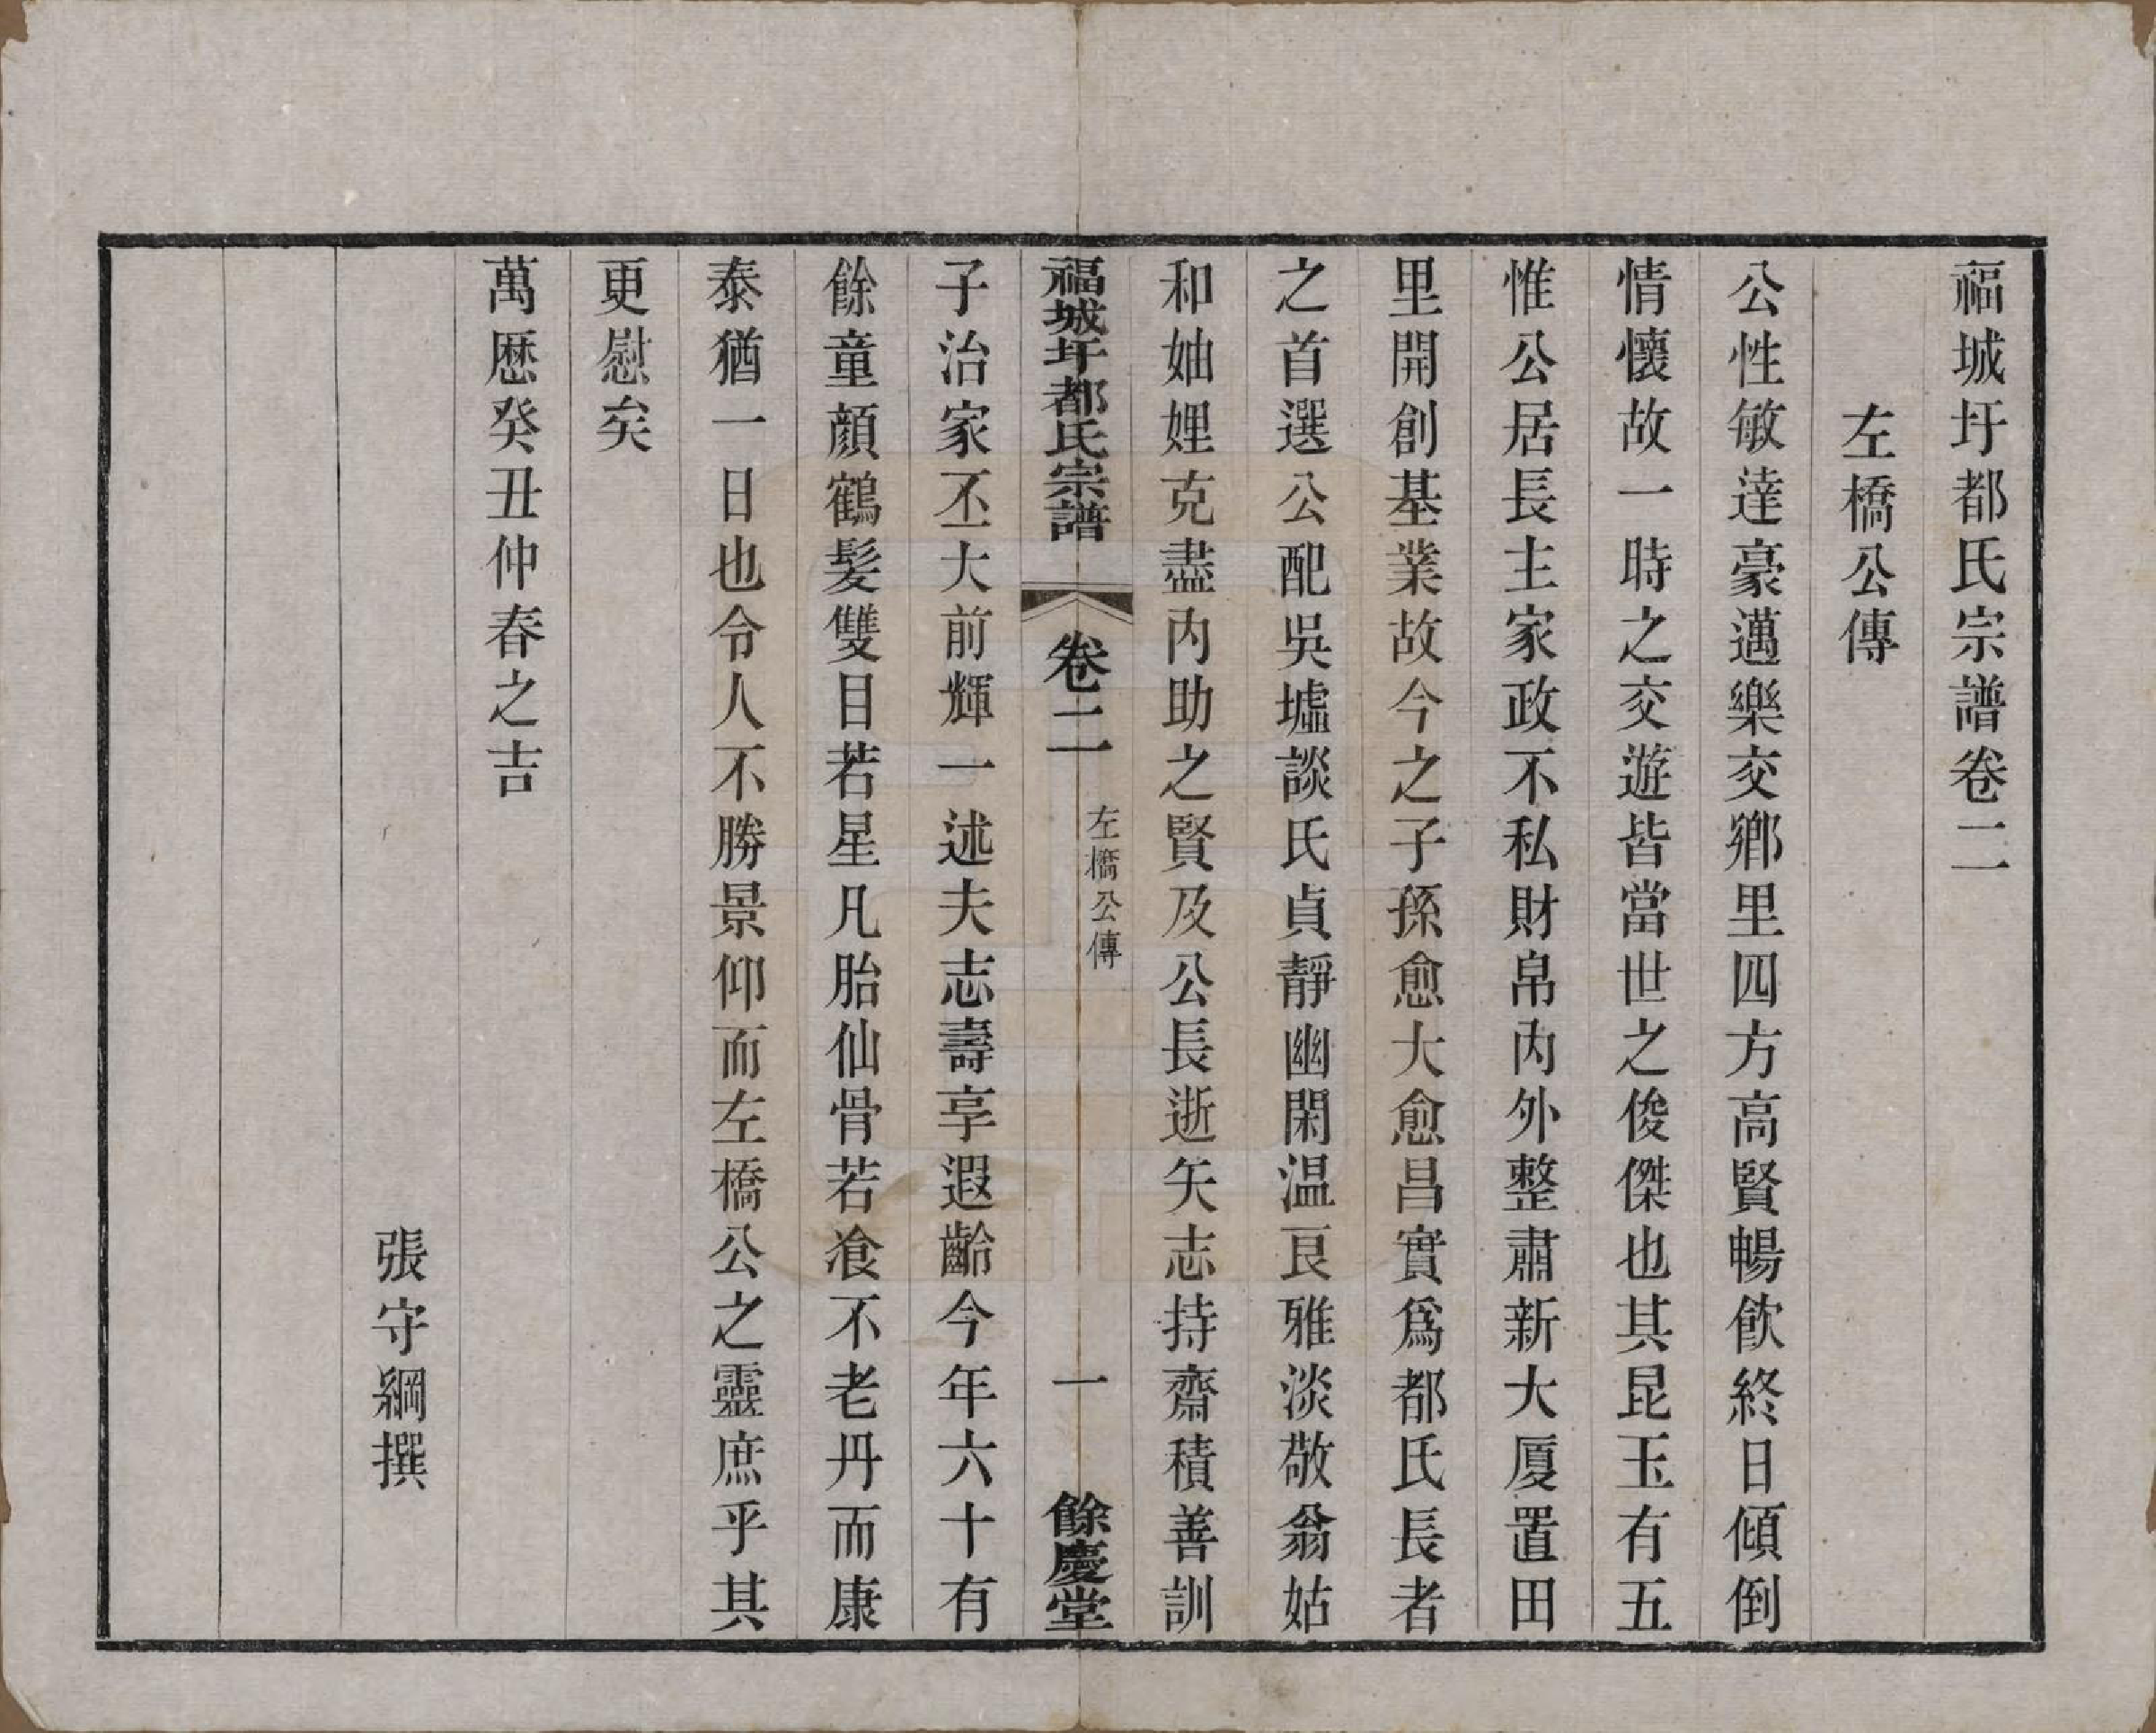 福城圩都氏宗譜卷二
左橋公傳
公性敏達豪邁樂交鄉里四方高賢暢飲終日傾倒
情懷故一時之交遊皆當世之俊傑也其昆玉有五
惟公居長主家政不私財帛內外整肅新大厦置田
里開創基業故今之子孫愈大愈昌實爲都氏長者
之首選公配吳墟談氏貞靜幽閑温良雅淡敬翁姑
和妯娌克盡內助之賢及公長逝矢志持齋積善訓
福城圩都氏宗譜
卷二
左橋公傳
一
餘慶堂
子治家丕大前輝一述夫志壽享遐齡今年六十有
餘童顔鶴髪雙目若星凡胎仙骨若飡不老丹而康
泰猶一日也令人不勝景仰而左橋公之靈庶乎其
更慰矣
萬歷癸丑仲春之吉
張守綱撰